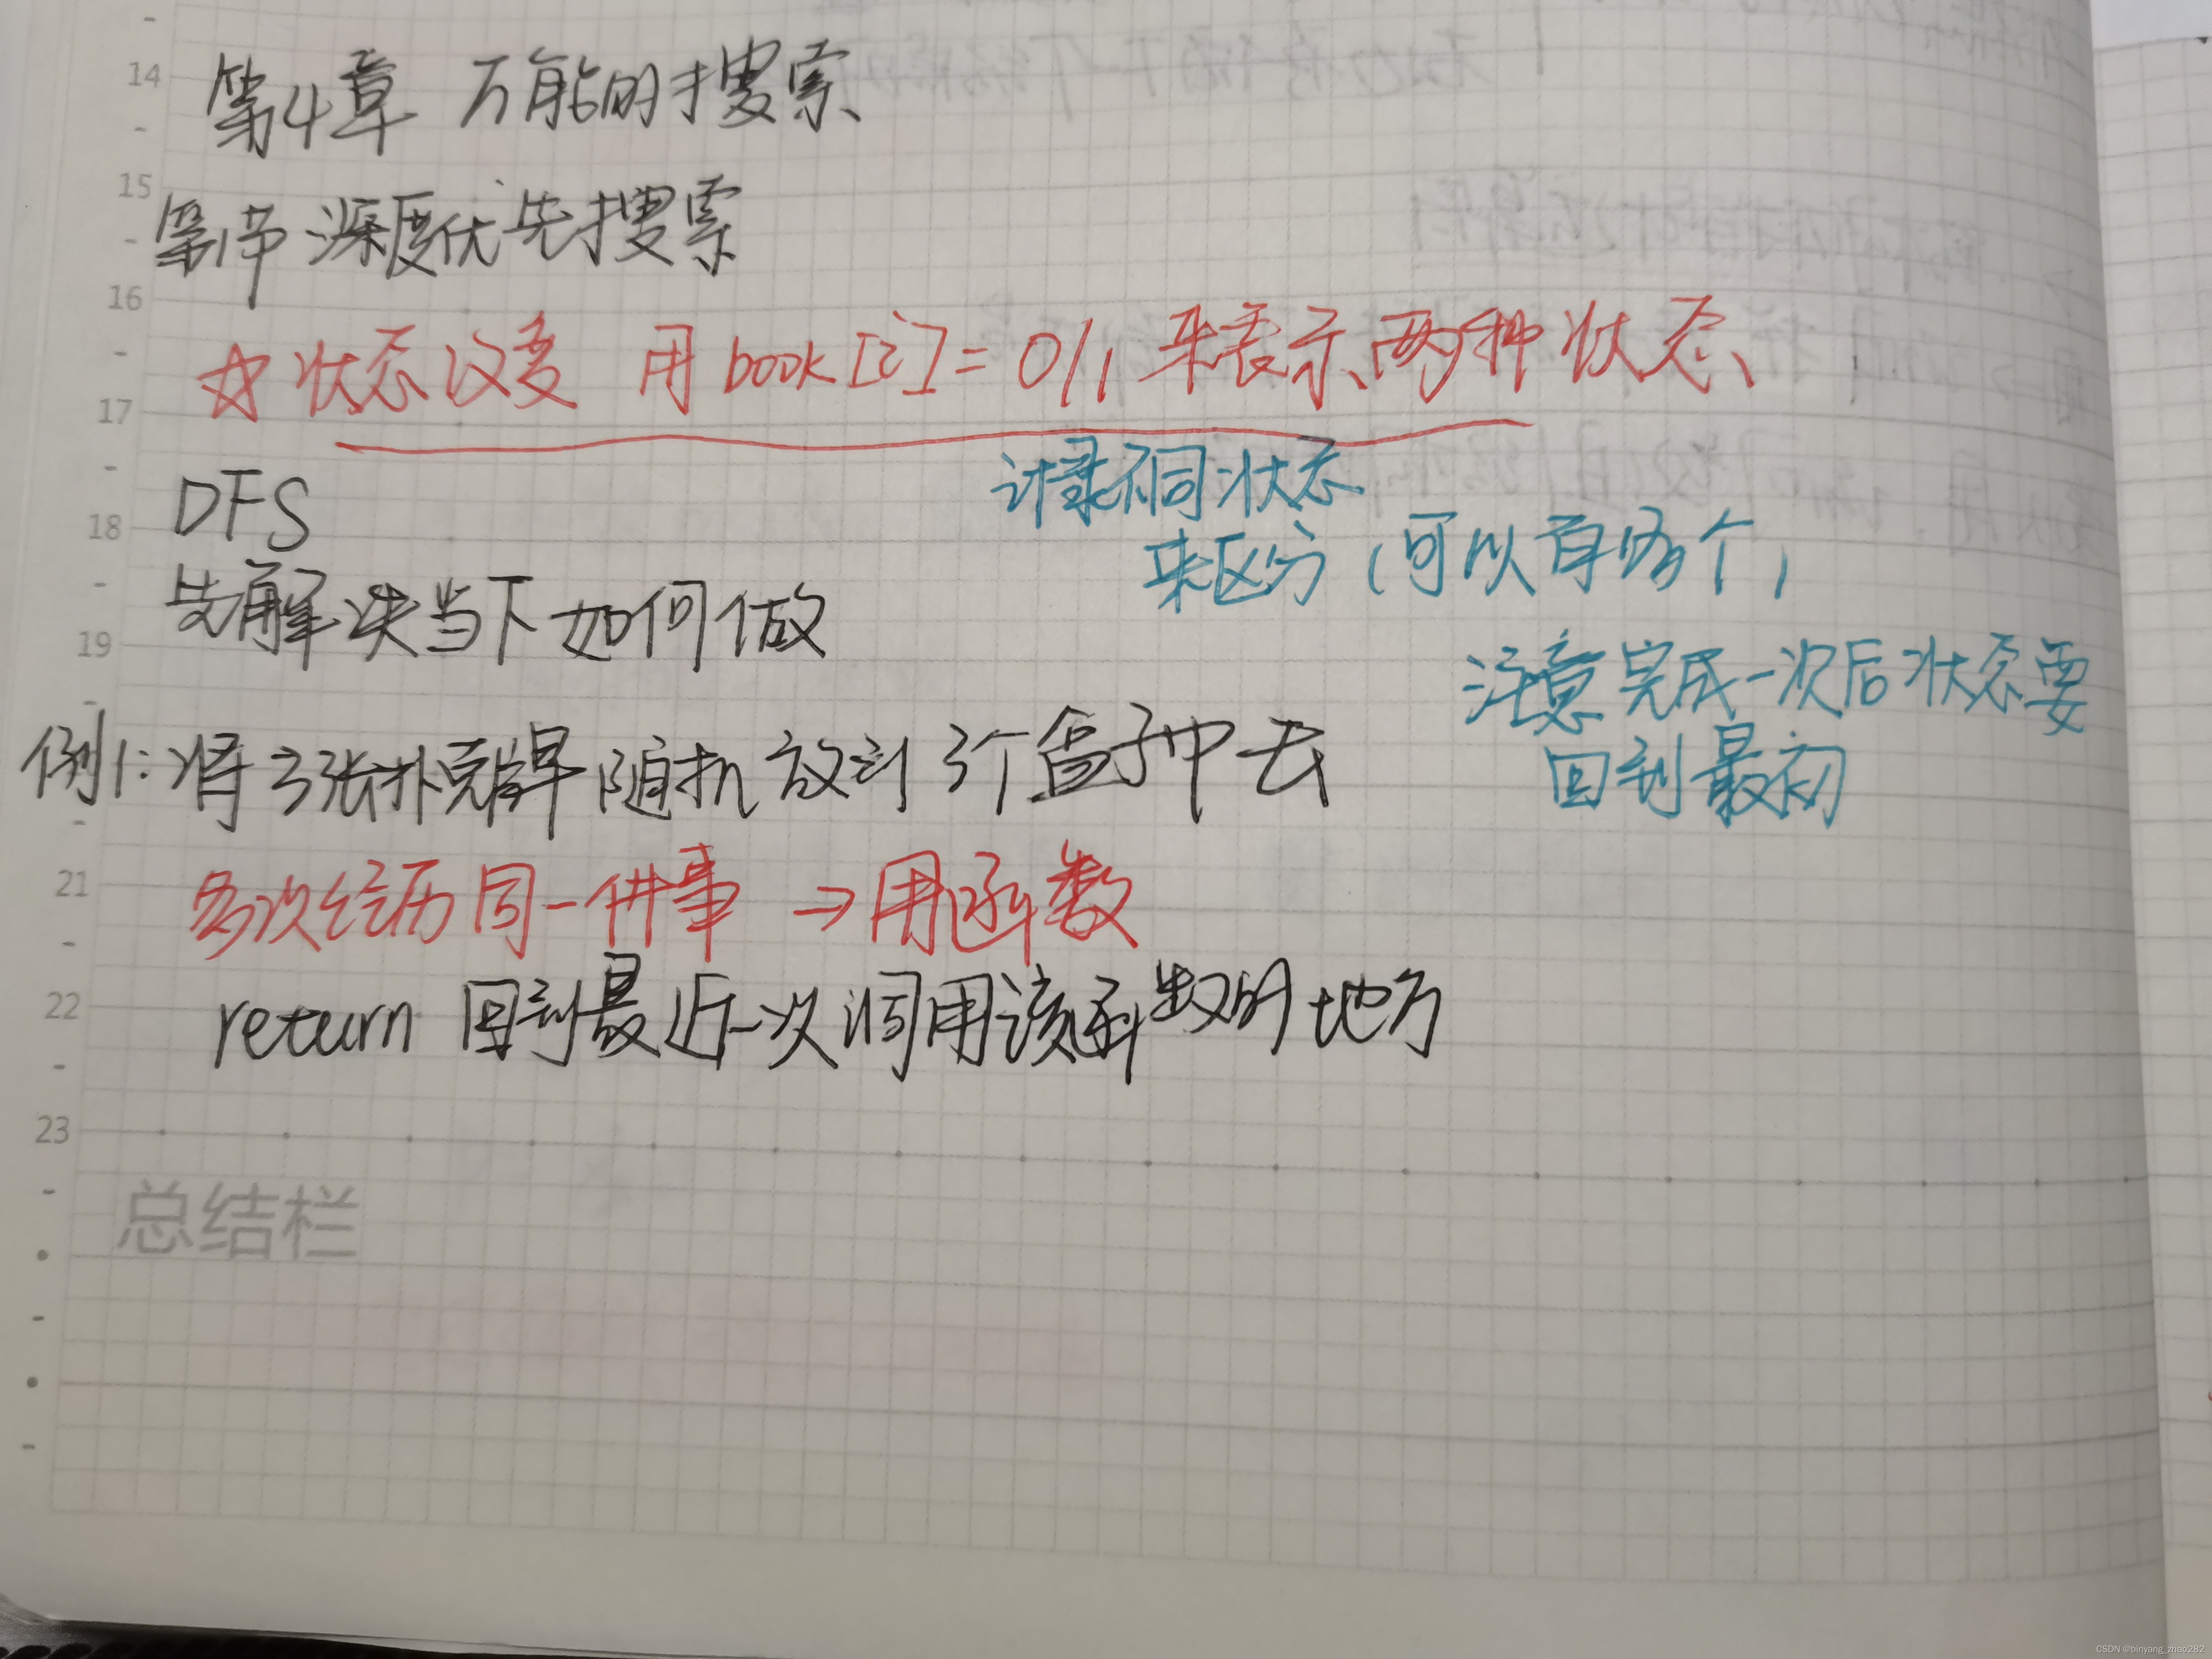 14
第4章 万能的搜索
15
第1节 深度优先搜索
16
☆状态改变 用book[i]=0/1来表示两种状态
17
记录不同状态
DFS
来区分(可以有多个)
18
先解决当下如何做
19
注意完成一次后状态要
回到最初
例1:将3张扑克牌随机放到3个盒子中去
21
多次经历同一件事 →用函数
22
return 回到最近一次调用该函数的地方
23
总结栏
CSDN @binyang_zhao282